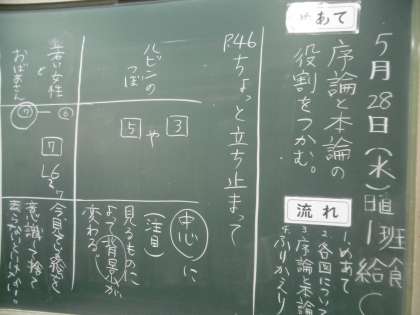 5月28日(水)
1班
給食
めあて
序論と本論の
役割をつかむ。
流れ
1.めあて
2.各図について
3.序論と本論
4.ふりかえり
P46ちょっと立ち止まって
ルビンの
つぼ
5や3
中心に
(注目)
見るものに
よって背景が
変わる。
若い女性
と
おばあさん
7
L6
7
今見ている
意識して捨て